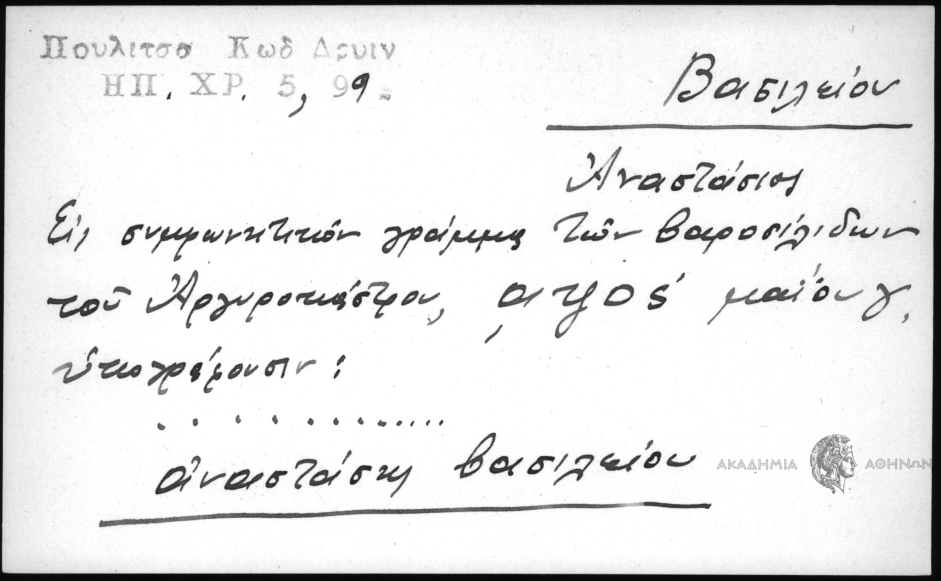 Πουλιτσα Κωδ Δρυιν
ΗΠ. ΧΡ. 5, 99.
Βασιλείου
Ἀναστάσιος
Εἰς συμφωνητικὸν γράμμα τῶν βαροσιλιδων
τοῦ Ἀργυροκάστρου, ͵αψος μαΐου γ,
ὑπογράφουσιν:
. . . . . . . . . . . . . .
ἀναστάσης βασιλείου
ΑΚΑΔΗΜΙΑ ΑΘΗΝΩΝ